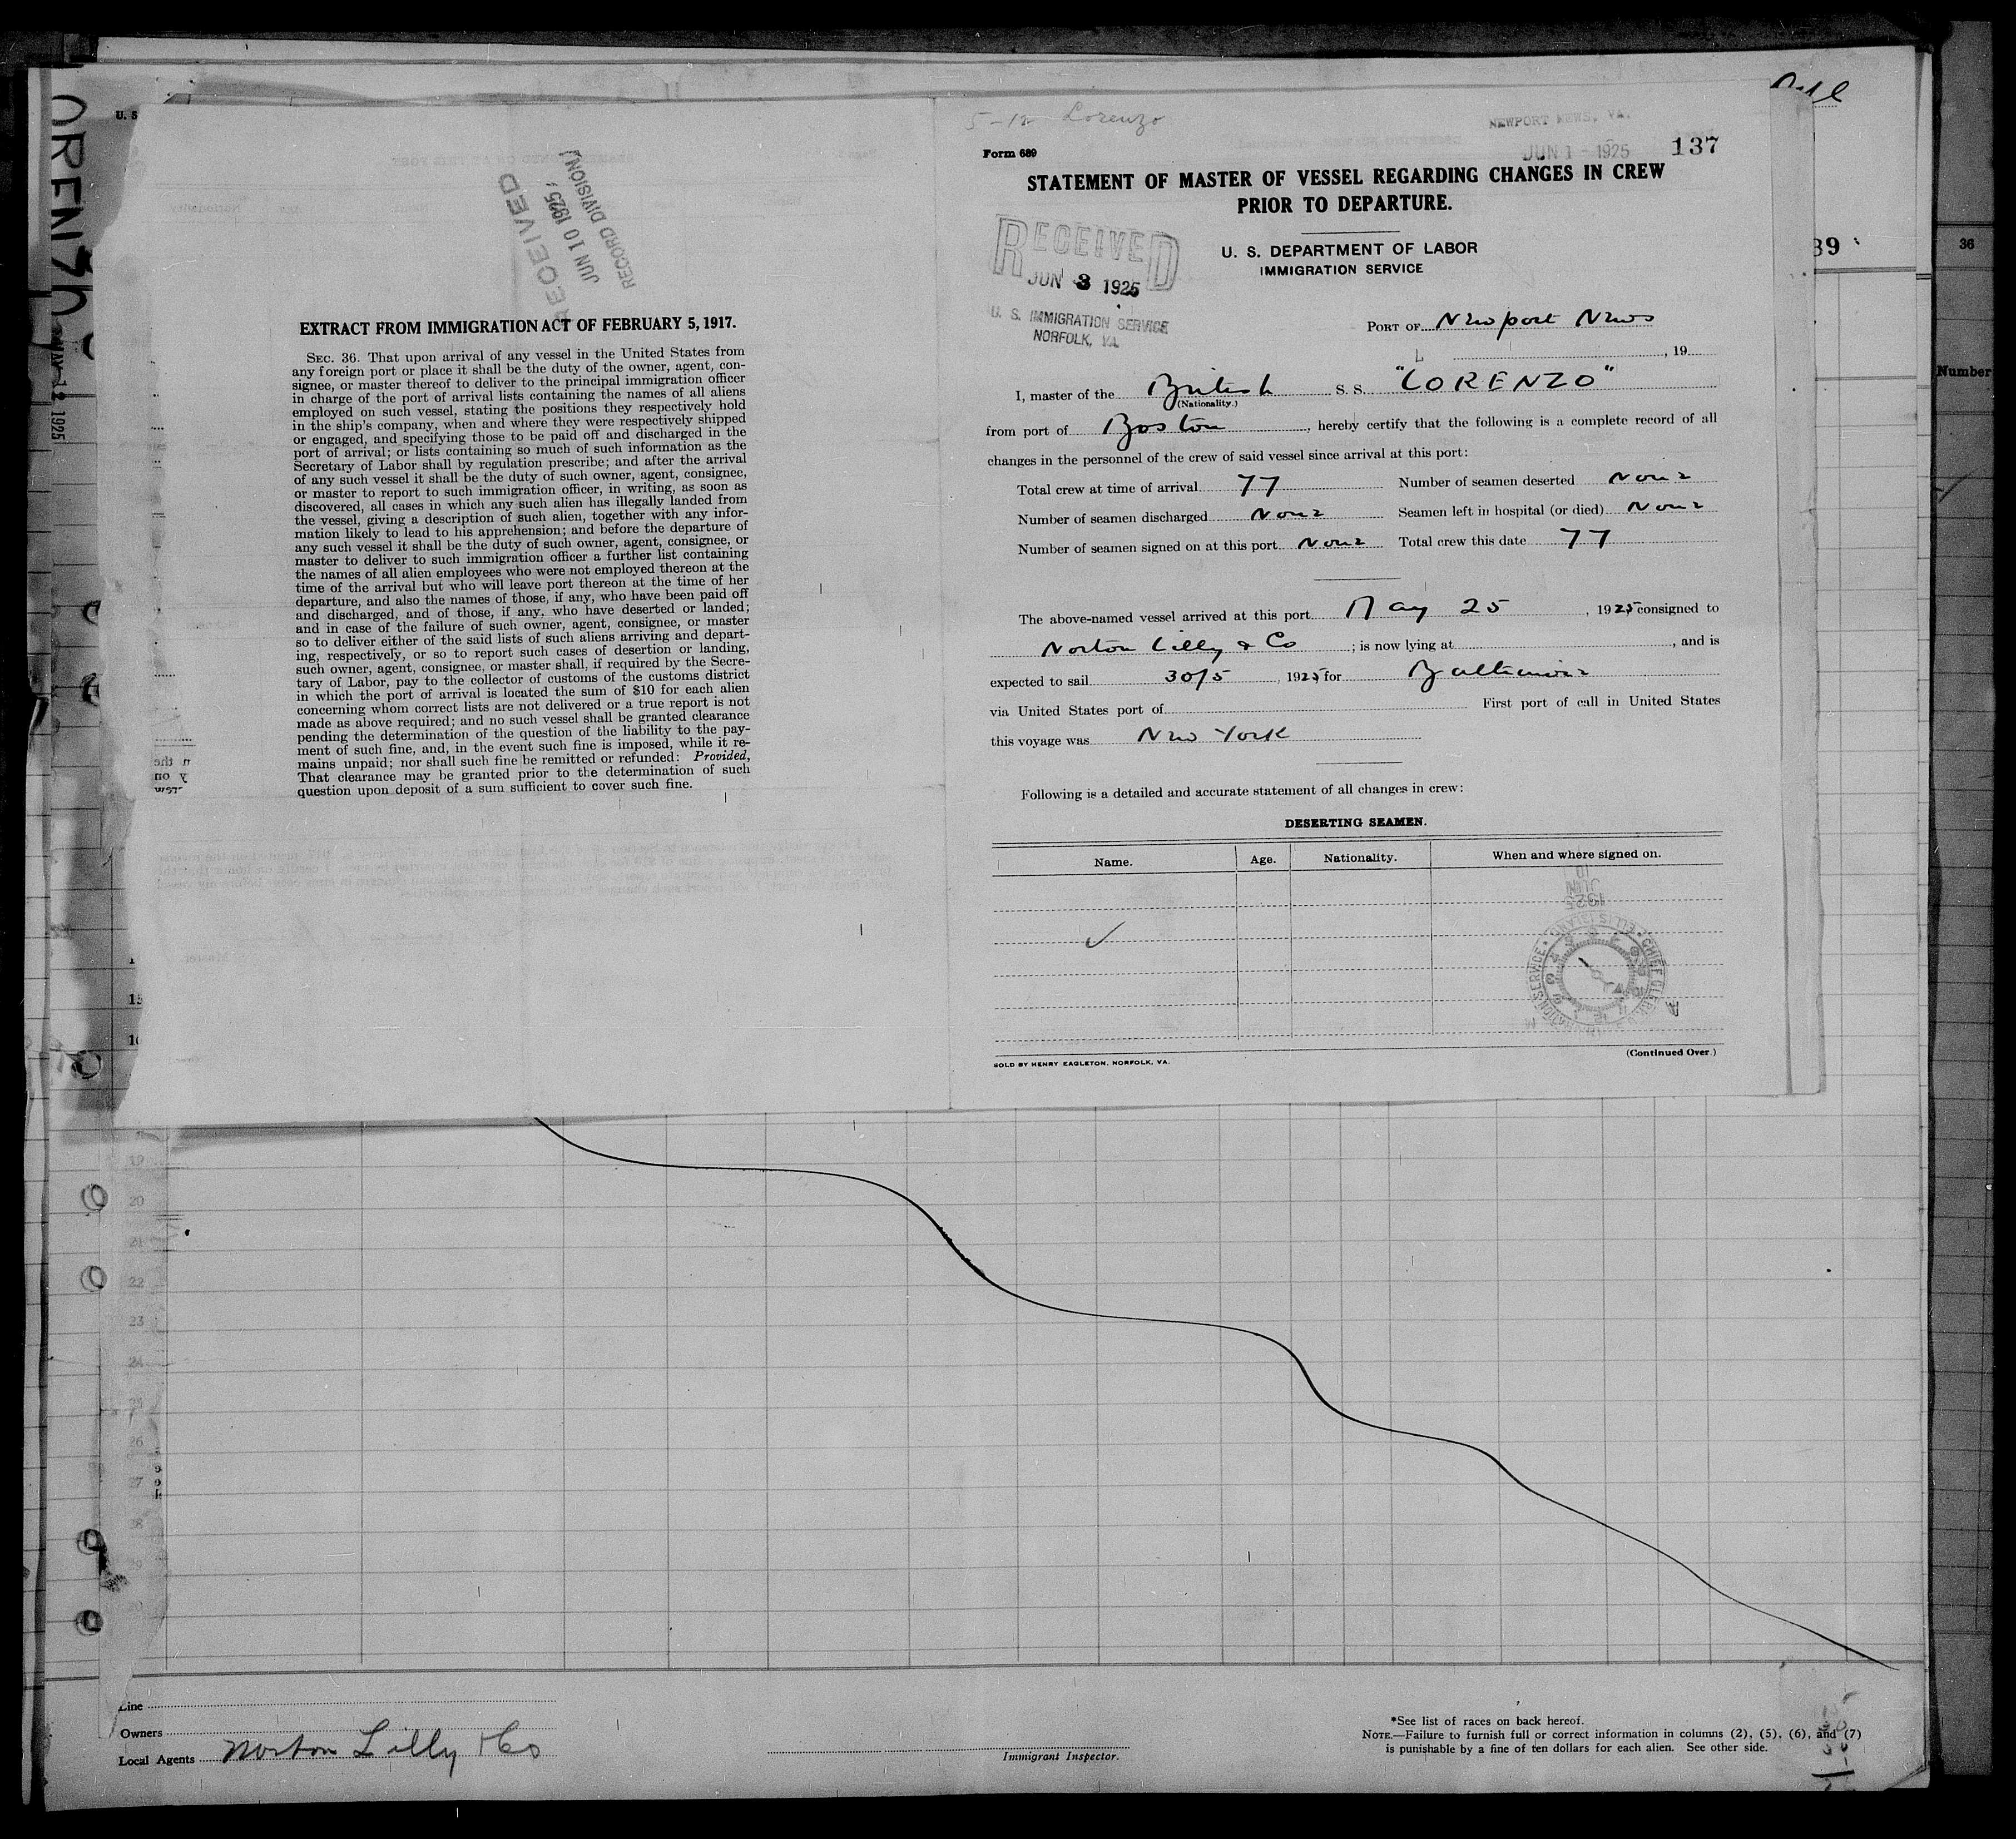 ORENZO
MAY 12 1925
U. S
RECEIVED
JUN 10 1925
RECORD DIVISION
EXTRACT FROM IMMIGRATION ACT OF FEBRUARY 5, 1917.
SEC. 36. That upon arrival of any vessel in the United States from
any foreign port or place it shall be the duty of the owner, agent, con-
signee, or master thereof to deliver to the principal immigration officer
in charge of the port of arrival lists containing the names of all aliens
employed on such vessel, stating the positions they respectively hold
in the ship's company, when and where they were respectively shipped
or engaged, and specifying those to be paid off and discharged in the
port of arrival; or lists containing so much of such information as the
Secretary of Labor shall by regulation prescribe; and after the arrival
of any such vessel it shall be the duty of such owner, agent, consignee,
or master to report to such immigration officer, in writing, as soon as
discovered, all cases in which any such alien has illegally landed from
the vessel, giving a description of such alien, together with any infor-
mation likely to lead to his apprehension; and before the departure of
any such vessel it shall be the duty of such owner, agent, consignee, or
master to deliver to such immigration officer a further list containing
the names of all alien employees who were not employed thereon at the
time of the arrival but who will leave port thereon at the time of her
departure, and also the names of those, if any, who have been paid off
and discharged, and of those, if any, who have deserted or landed;
and in case of the failure of such owner, agent, consignee, or master
so to deliver either of the said lists of such aliens arriving and depart-
ing, respectively, or so to report such cases of desertion or landing,
such owner, agent, consignee, or master shall, if required by the Secre-
tary of Labor, pay to the collector of customs of the customs district
in which the port of arrival is located the sum of $10 for each alien
concerning whom correct lists are not delivered or a true report is not
made as above required; and no such vessel shall be granted clearance
pending the determination of the question of the liability to the pay-
ment of such fine, and, in the event such fine is imposed, while it re-
mains unpaid; nor shall such fine be remitted or refunded: Provided,
That clearance may be granted prior to the determination of such
question upon deposit of a sum sufficient to cover such fine.
5-12 Lorenzo
NEWPORT NEWS, VA.
JUN 1 - 1925
137
Form 689
STATEMENT OF MASTER OF VESSEL REGARDING CHANGES IN CREW
PRIOR TO DEPARTURE.
RECEIVED
JUN 3 1925
U. S. IMMIGRATION SERVICE
NORFOLK, VA.
U. S. DEPARTMENT OF LABOR
IMMIGRATION SERVICE
PORT OF Newport News
, 19
I, master of the British S. S. "LORENZO"
(Nationality.)
from port of Boston, hereby certify that the following is a complete record of all
changes in the personnel of the crew of said vessel since arrival at this port:
Total crew at time of arrival 77 Number of seamen deserted None
Number of seamen discharged None Seamen left in hospital (or died) None
Number of seamen signed on at this port None Total crew this date 77
The above-named vessel arrived at this port May 25, 1925 consigned to
Norton Lilly & Co; is now lying at, and is
expected to sail 30/5, 1925 for Baltimore
via United States port of First port of call in United States
this voyage was New York
Following is a detailed and accurate statement of all changes in crew:
DESERTING SEAMEN.
Name. Age. Nationality. When and where signed on.
10
JUN
1925
CHIEF CLERK
ELLIS ISLAND
SOLD BY HENRY EAGLETON, NORFOLK, VA.
(Continued Over.)
39
36
Number
15
19
20
21
22
23
24
26
27
28
29
Line
Owners
Local Agents Norton Lilly & Co
Immigrant Inspector.
*See list of races on back hereof.
NOTE.—Failure to furnish full or correct information in columns (2), (5), (6), and (7)
is punishable by a fine of ten dollars for each alien. See other side.